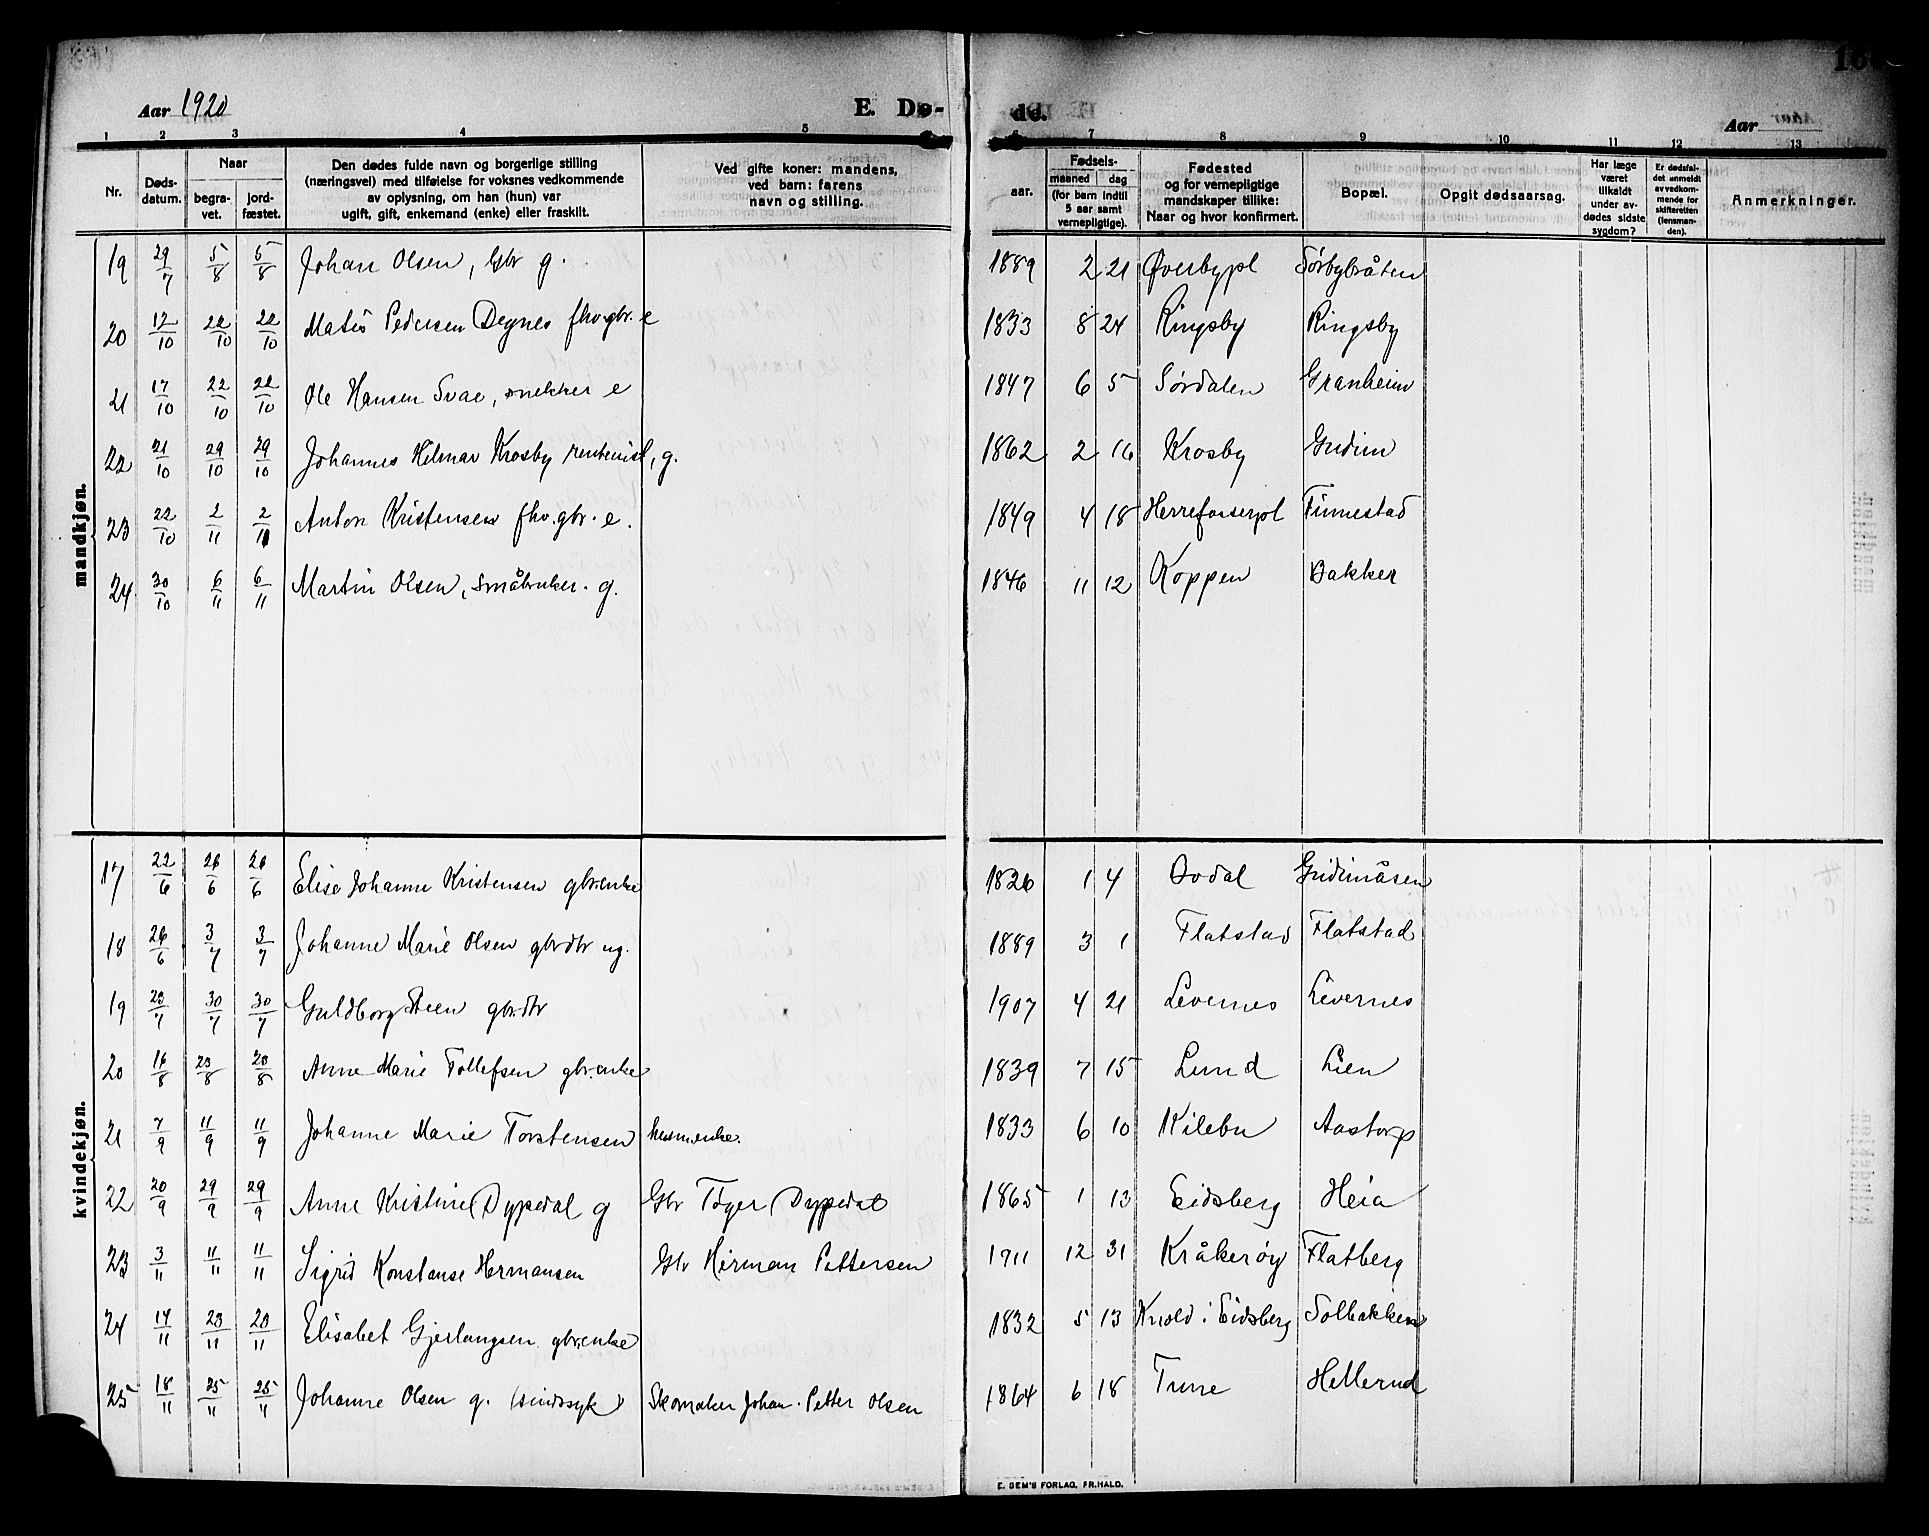 Aar 1920 E. Dø- de. Aar
1 2 3 4 5 6 7 8 9 10 11 12 13
Nr. Døds-datum. Naar begra-vet. jord-fæstet. Den dødes fulde navn og borgerlige stilling (næringsvei) med tilføielse for voksnes vedkommende av oplysning, om han (hun) var ugift, gift, enkemand (enke) eller fraskilt. Ved gifte koner: mandens, ved barn: farens navn og stilling. aar. Fødsels- maaned dag (for barn indtil 5 aar samt vernepligtige). Fødested og for vernepligtige mandskaper tillike: Naar og hvor konfirmert. Bopæl. Opgit dødsaarsag. Har læge været tilkaldt under av-dødes sidste sygdom? Er dødsfal-det anmeldt av vedkom-mende for skifteretten (lensman-den). Anmerkninger.
mandkjøn.
19 29/7 5/8 5/8 Johan Olsen, Gbr g. 1889 2 21 Øverbypl Sørbybråten
20 12/10 22/10 22/10 Matis Pedersen Degnes fhv.gbr. e 1833 8 24 Ringsby Ringsby
21 17/10 22/10 22/10 Ole Hansen Svae, snekker e 1847 6 5 Sørdalen Granheim
22 21/10 29/10 29/10 Johannes Hilmar Krosby rentenist, g. 1862 2 16 Krosby Gudim
23 22/10 2/11 2/11 Anton Kristensen fhv.gbr. e. 1849 4 18 Herrefosserpl Finnestad
24 30/10 6/11 6/11 Martin Olsen, småbruker. g. 1846 11 12 Koppen Bakker
kvindekjøn.
17 22/6 26/6 26/6 Elise Johanne Kristensen gbr.enke 1826 1 4 Godal Gudimåsen
18 26/6 3/7 3/7 Johanne Marie Olsen gbrdtr ug. 1889 3 1 Flatstad Flatstad
19 23/7 30/7 30/7 Guldborg Steen gbr.dtr 1907 4 21 Levernes Levernes
20 16/8 23/8 23/8 Anne Marie Tollefsen gbr.enke 1839 7 15 Lund Lien
21 7/9 11/9 11/9 Johanne Marie Torstensen husm.enke. 1833 6 10 Kilebu Aastorp
22 20/9 29/9 29/9 Anne Kristine Dypedal g Gbr Tøger Dypedal 1865 1 13 Eidsberg Heia
23 3/11 11/11 11/11 Sigrid Konstanse Hermansen Gbr Herman Pettersen 1911 12 31 Kråkerøy Flatberg
24 14/11 23/11 23/11 Elisabet Gjerlaugsen gbr.enke 1832 5 13 Knold i Eidsberg Solbakken
25 18/11 25/11 25/11 Johanne Olsen g. (sindssyk) Skomaker Johan Petter Olsen 1864 6 18 Tune Hellerud
E. SEM'S FORLAG, FR.HALD.